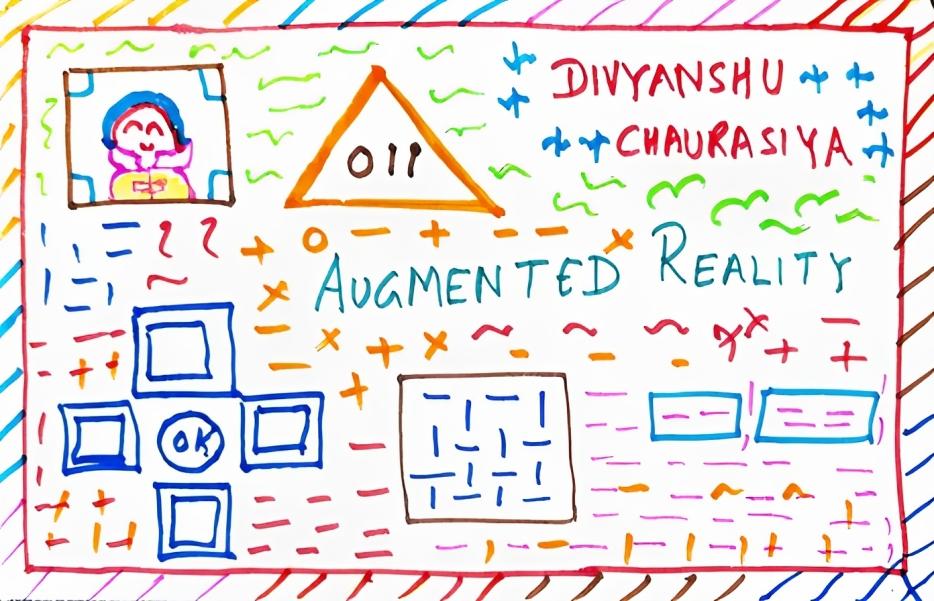 DIVYANSHU
CHAURASIYA
011
AUGMENTED REALITY
OK